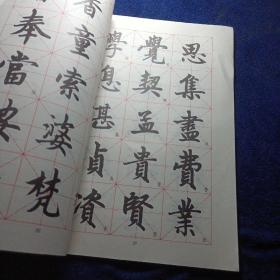 思集盡費業
覺契孟貴賢
學息甚貞資
香童索婆梵
奉當